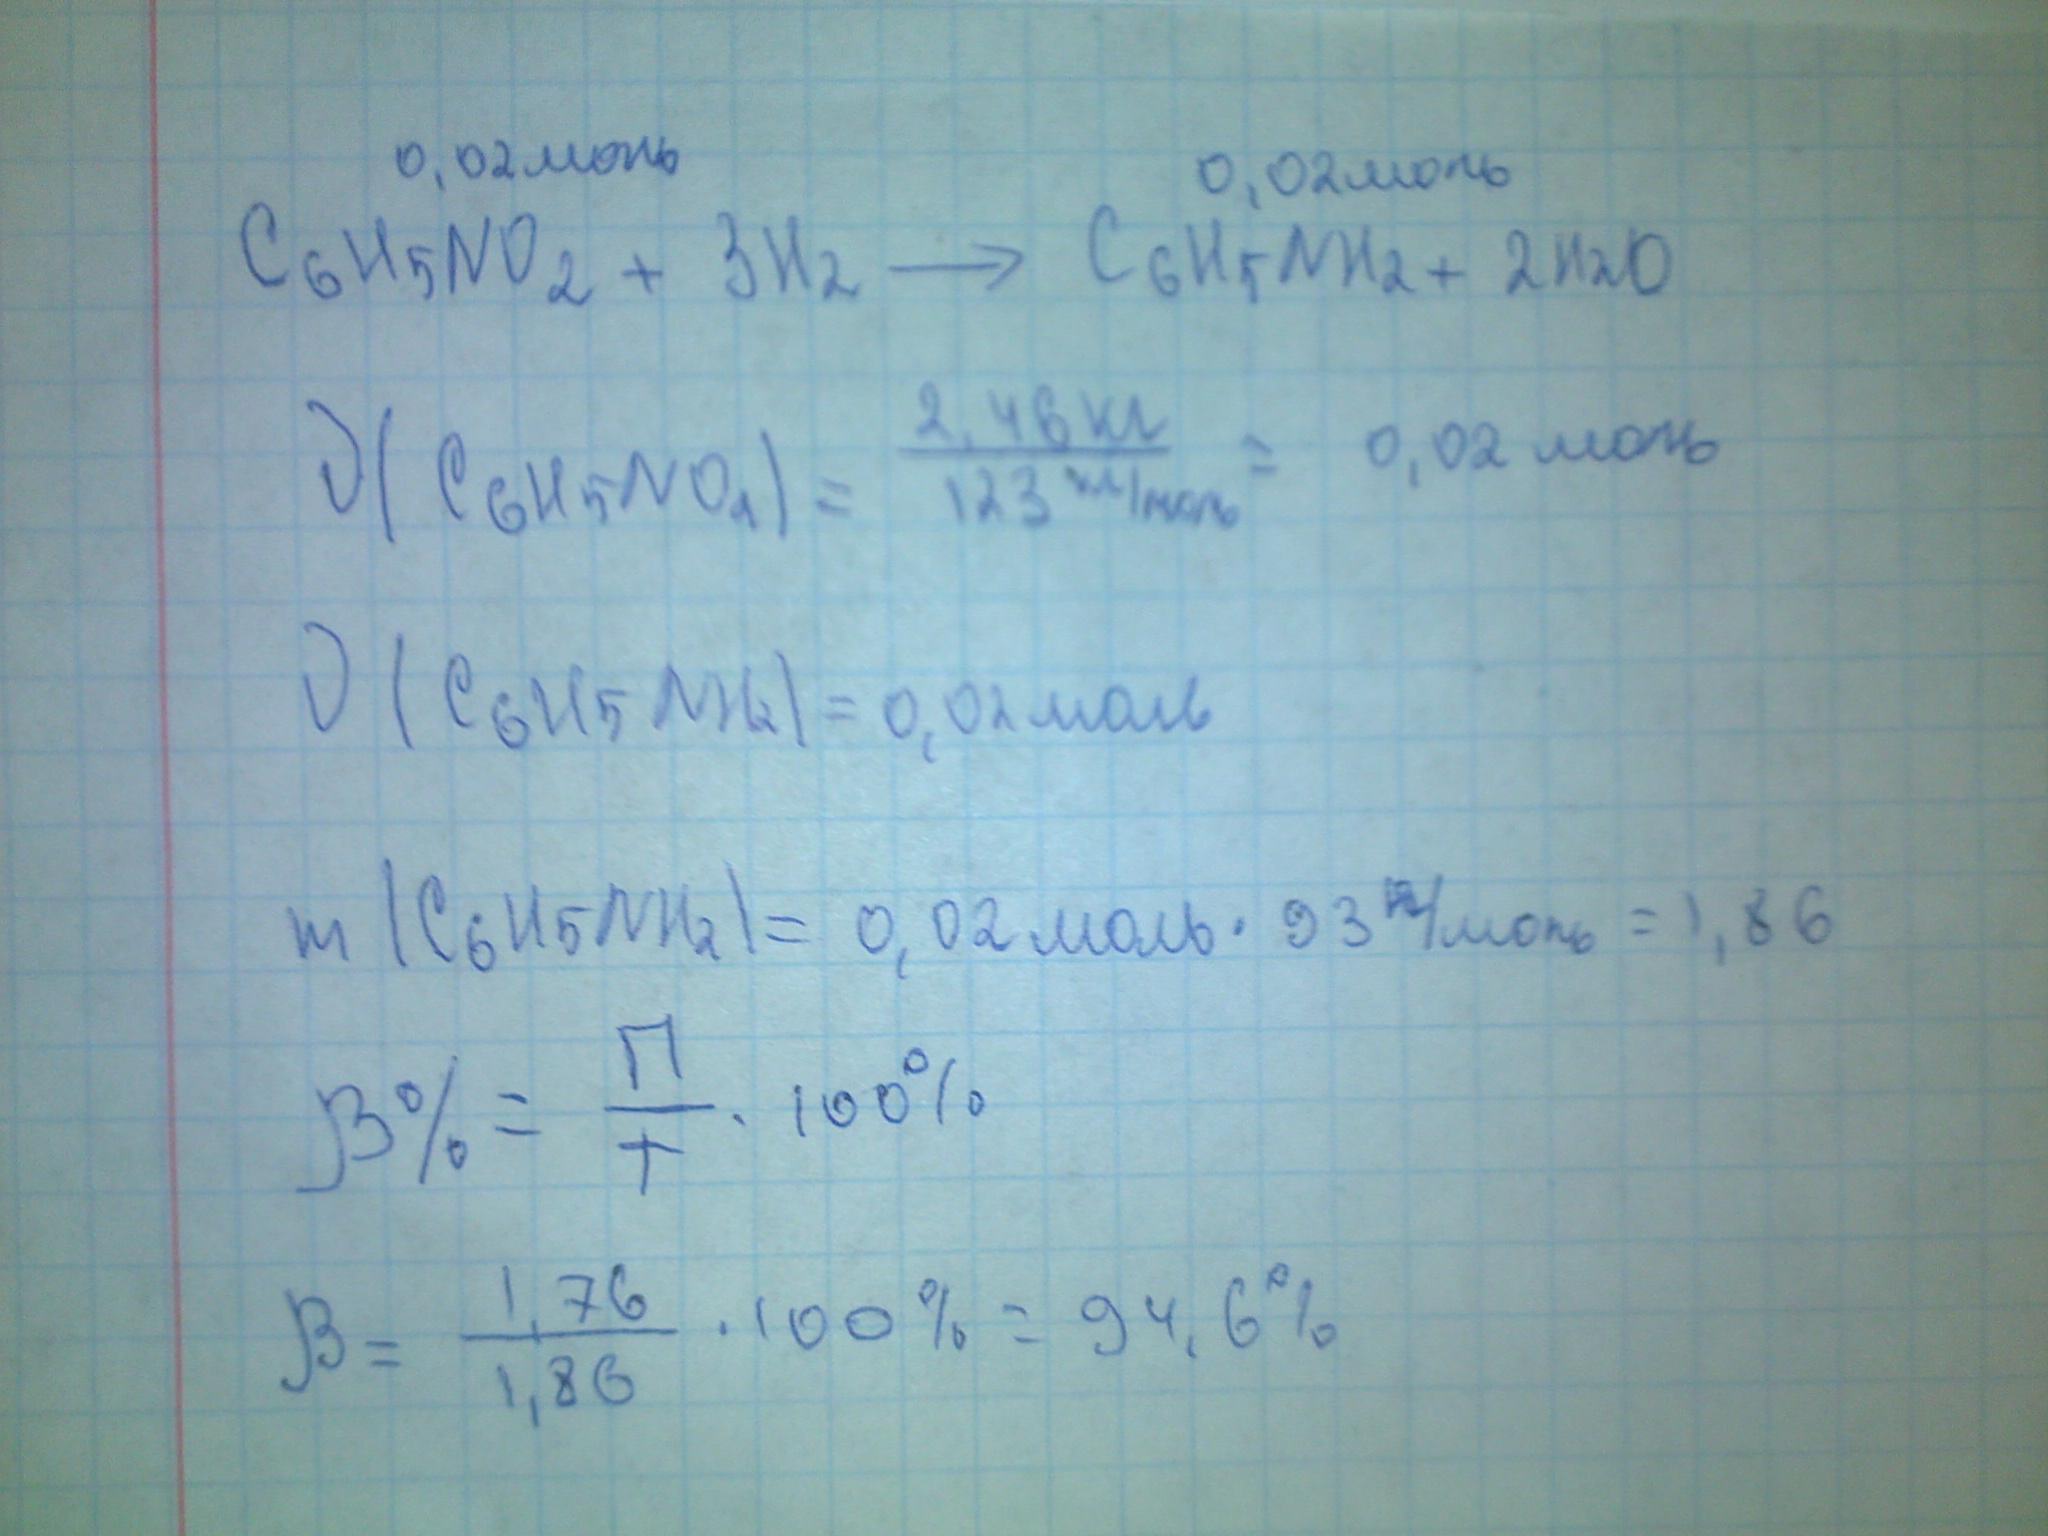 0,02моль 0,02моль
C6H5NO2 + 3H2 → C6H5NH2 + 2H2O
ν(C6H5NO2) = 2,46кг / 123 кг/моль = 0,02 моль
ν(C6H5NH2) = 0,02моль
m(C6H5NH2) = 0,02моль · 93 /моль = 1,86
β% = П / Т · 100%
β = 1,76 / 1,86 · 100% = 94,6%